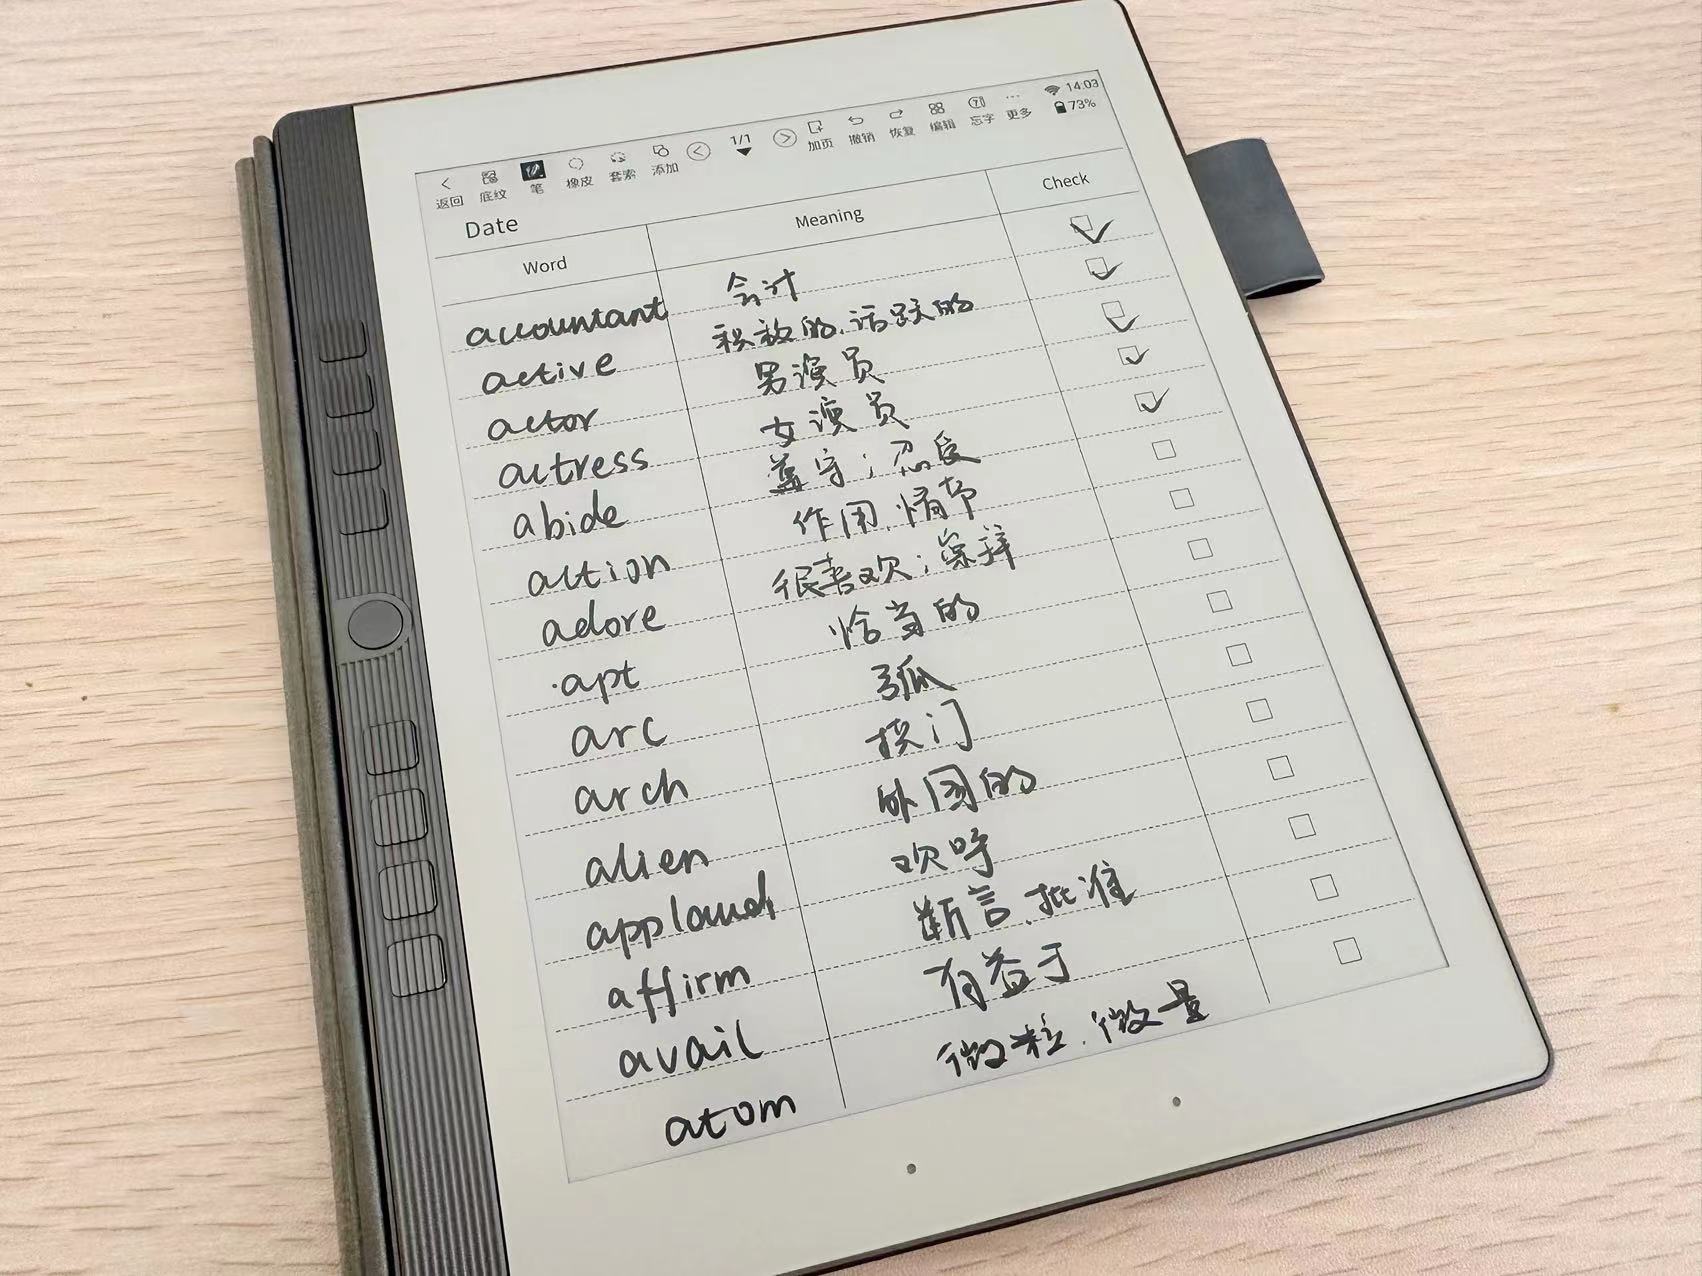 14:03
73%
返回 底纹 笔 橡皮 套索 添加 1/1 加页 撤销 恢复 编辑 忘字 更多
Date
Word Meaning Check
accountant 会计
active 积极的、活跃的
actor 男演员
actress 女演员
abide 遵守；忍受
action 作用、情节
adore 很喜欢；崇拜
apt 恰当的
arc 弧
arch 拱门
alien 外国的
applaud 欢呼
affirm 断言、批准
avail 有益于
atom 微粒、微量